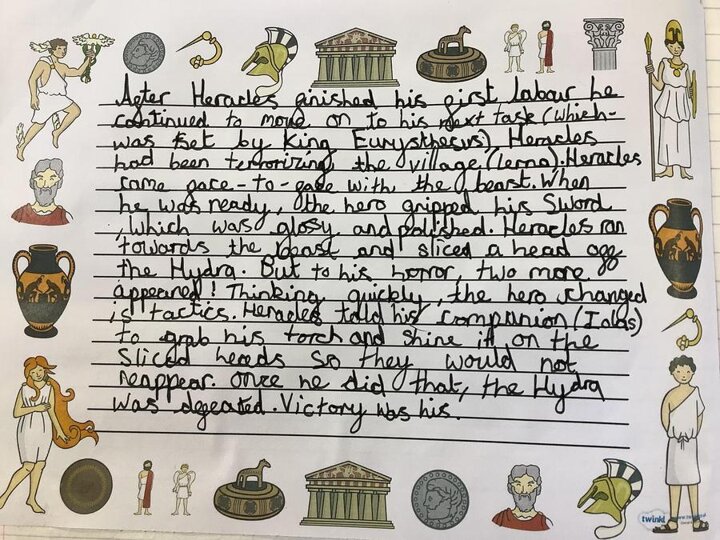 After Heracles finished his first labour he
continued to move on to his next task (which-
was set by King Eurysthecus) Heracles
had been terrorizing the village (lerna). Heracles
came face-to-face with the beast. When
he was ready, the hero gripped his Sword
, which was glosy and polished. Heracles ran
towards the beast and sliced a head off
the Hydra. But to his horror, two more
appeared! Thinking quickly, the hero changed
is tactics. Heracles told his companion (Iolas)
to grab his torch and shine it on the
Sliced heads so they would not
reappear. Once he did that, the Hydra
was defeated. Victory was his.
twinkl